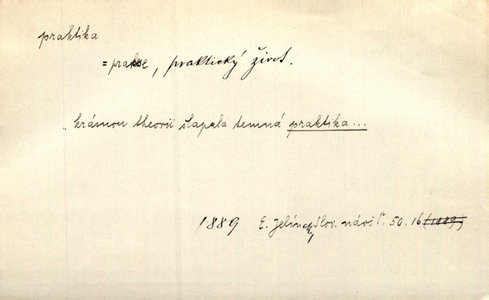 praktika
= prakse, praktický život.
„krásnou theorii slapala temná praktika...
1889 E. Jelínek, Slov. návš. 50. 16 (1889)